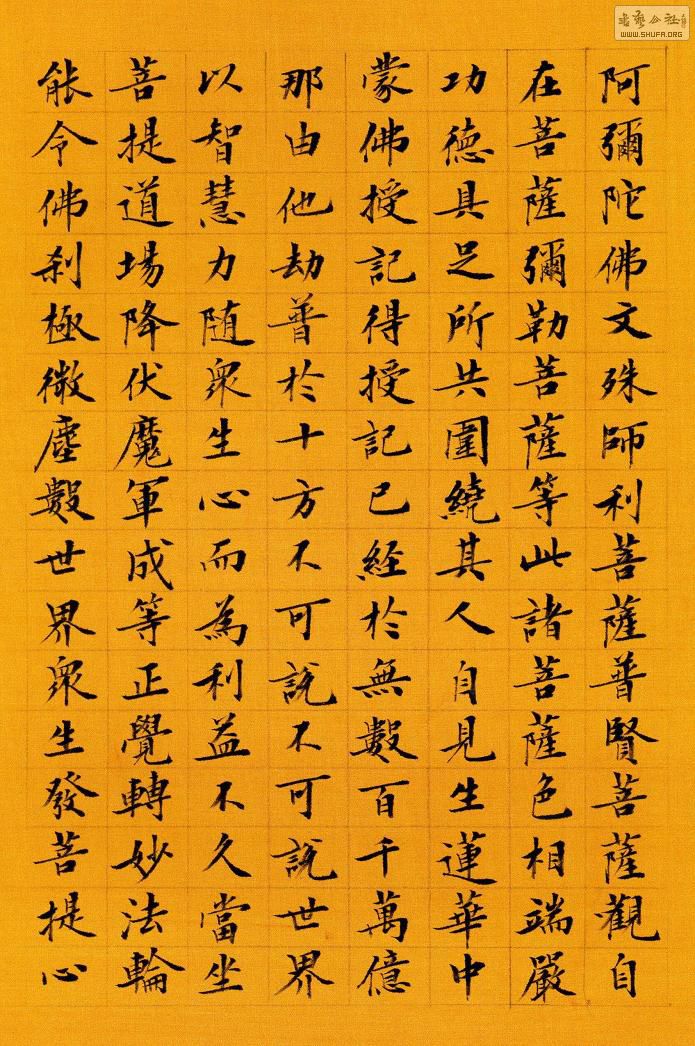 阿彌陀佛文殊師利菩薩普賢菩薩觀自
在菩薩彌勒菩薩等此諸菩薩色相端嚴
功德具足所共圍繞其人自見生蓮華中
蒙佛授記得授記已經於無數百千萬億
那由他劫普於十方不可說不可說世界
以智慧力随眾生心而為利益不久當坐
菩提道場降伏魔軍成等正覺轉妙法輪
能令佛剎極微塵數世界眾生發菩提心
書藝公社
WWW.SHUFA.ORG